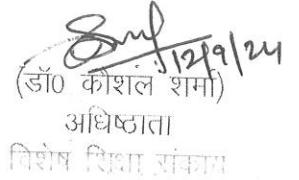 12/9/24
(डॉ0 कौशल शर्मा)
अधिष्ठाता
विशेष शिक्षा संकाय